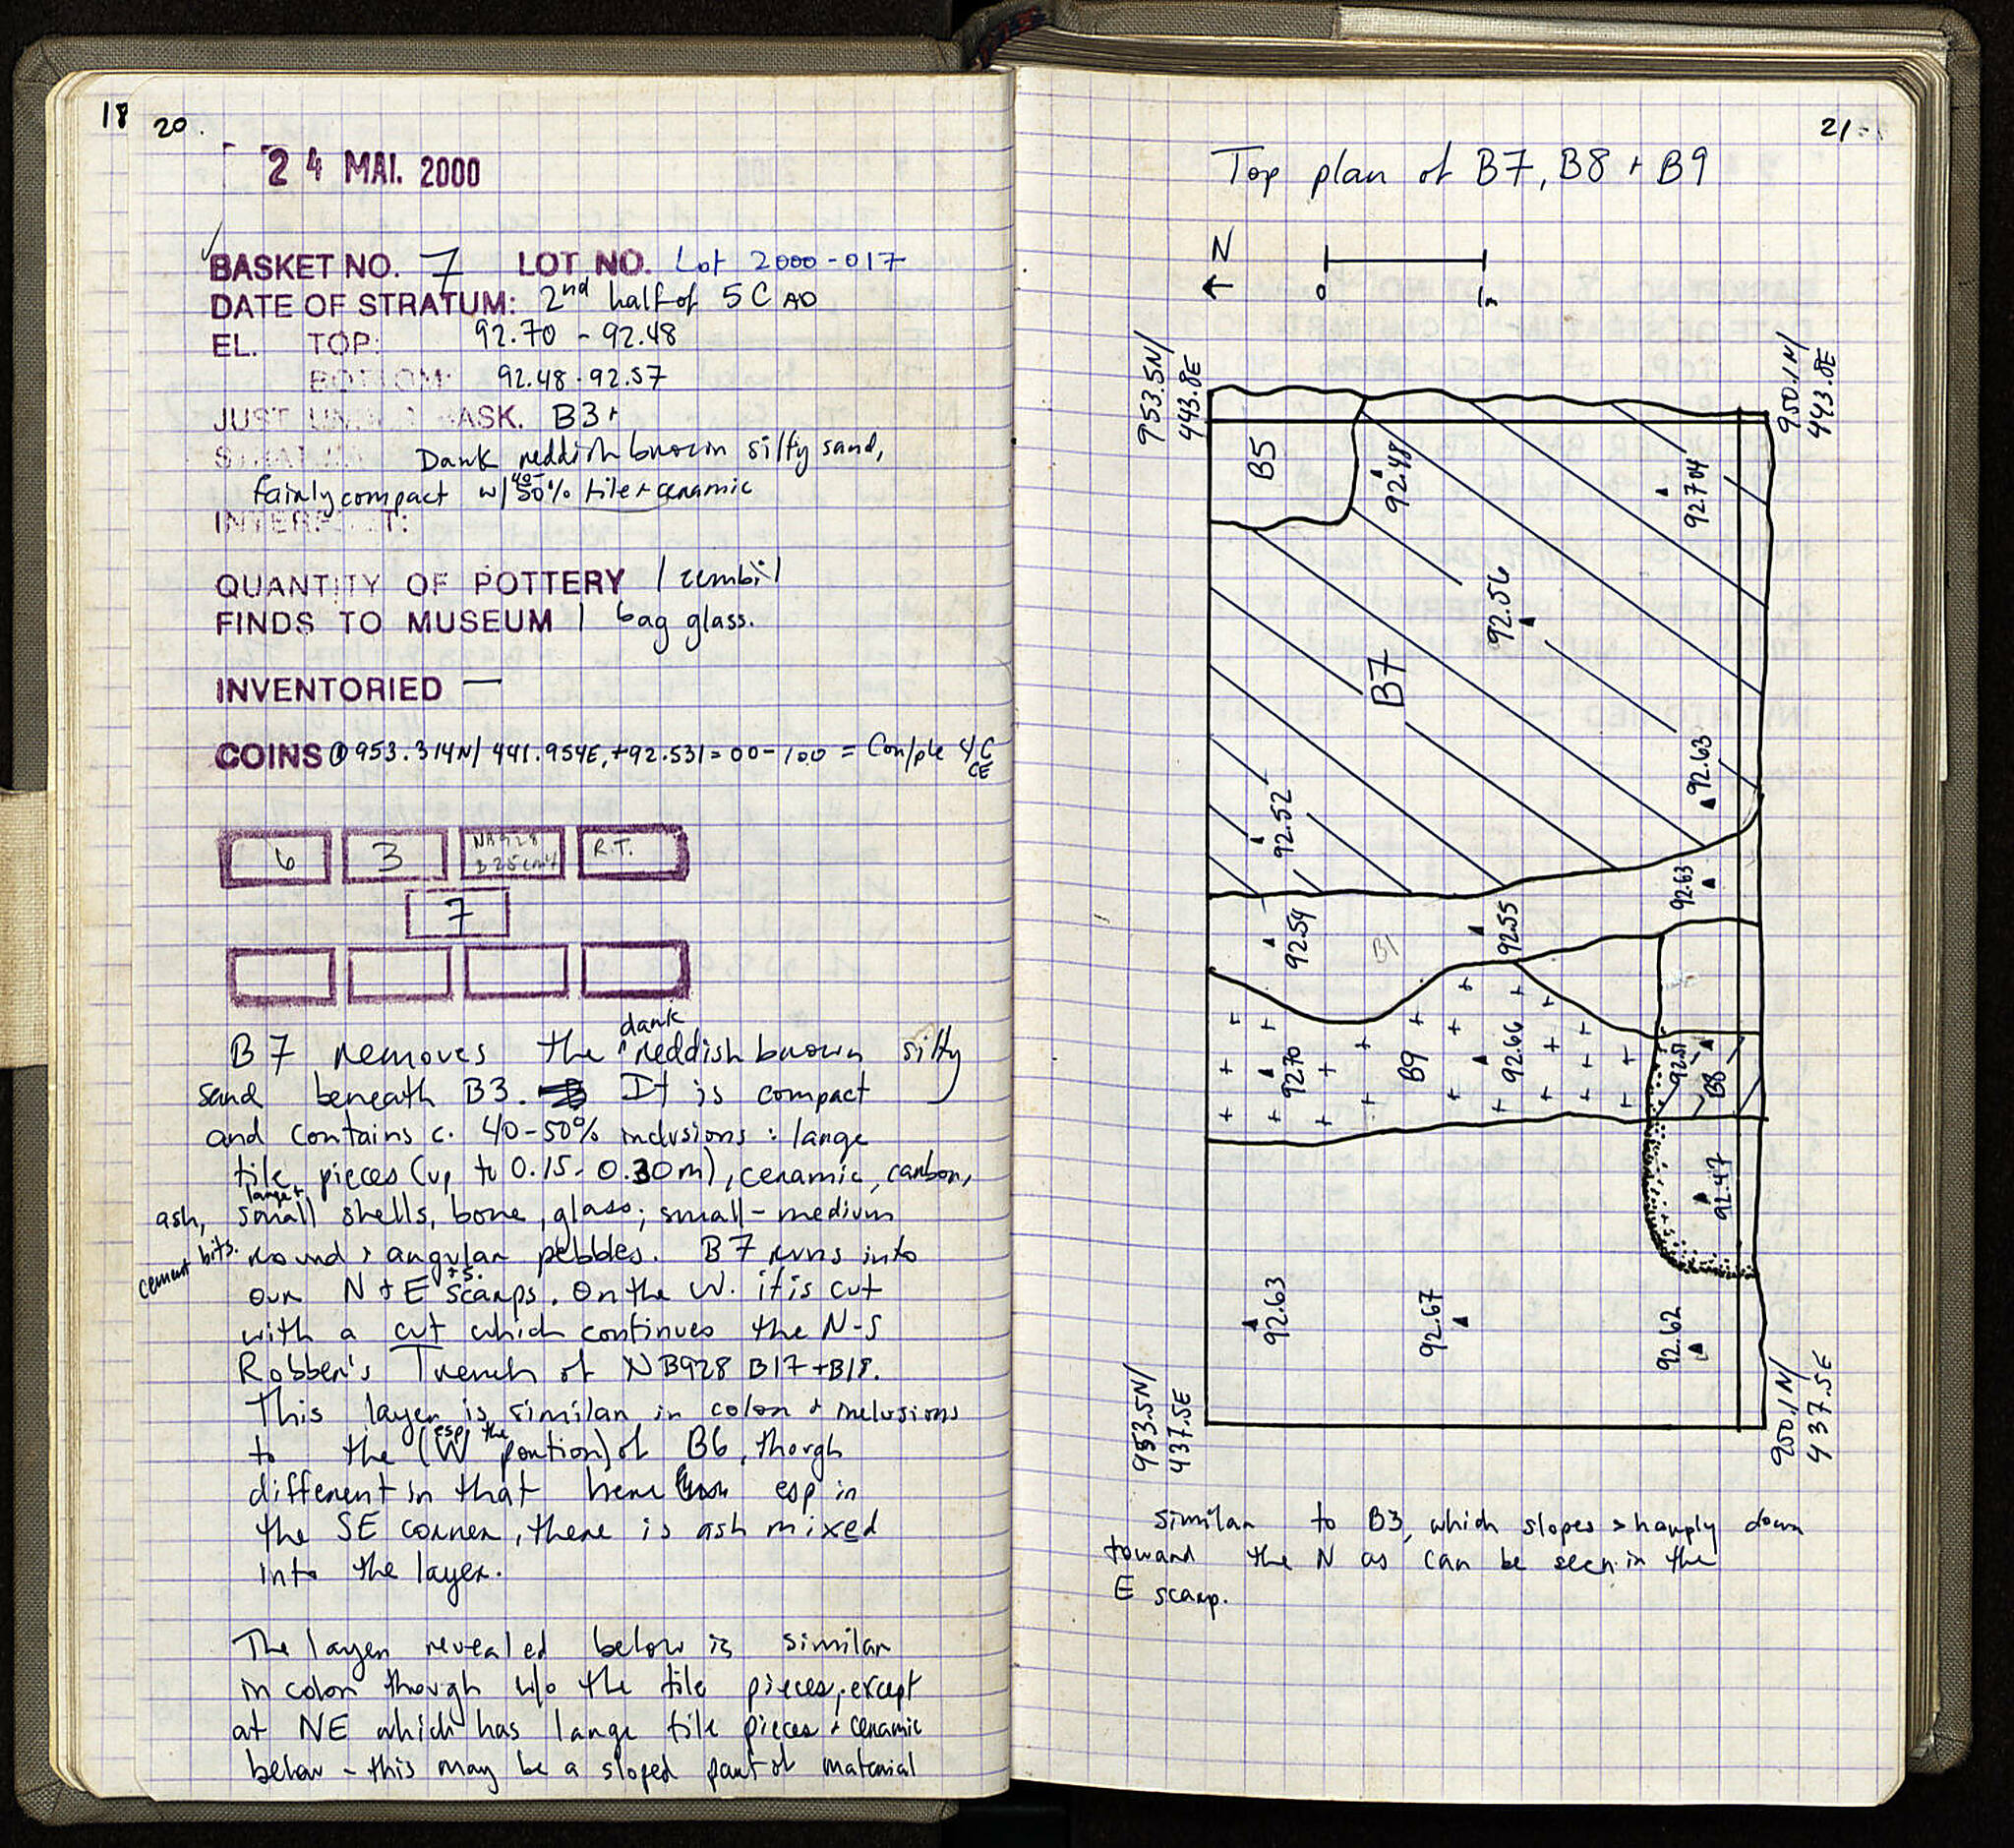 18
20.
24 MAI. 2000
BASKET NO. 7 LOT NO. Lot 2000-017
DATE OF STRATUM: 2nd half of 5 C AD
EL. TOP: 92.70 - 92.48
BOTTOM: 92.48-92.57
JUST UNDER BASK. B3+
Dark reddish brown silty sand,
fairly compact w/ 40-50% tile + ceramic
INTERPRET:
QUANTITY OF POTTERY 1 zembil
FINDS TO MUSEUM 1 bag glass.
INVENTORIED —
COINS ① 953.314N/ 441.954E, +92.531 = 00-100 = Con/ple 4/C CE
6 3 NB928 B25 R.T.
7
B7 removes the dark reddish brown silty
sand beneath B3. It is compact
and contains c. 40-50% inclusions : large
tile pieces (up to 0.15-0.30m), ceramic, carbon,
ash, large + small shells, bone, glass; small-medium
cement bits. round + angular pebbles. B7 runs into
our N + E + S. scarps. On the W. it is cut
with a cut which continues the N-S
Robber's Trench of NB928 B17 + B18.
This layer is similar in color + inclusions
to the (esp W the portion) of B6, though
different in that here esp in
the SE corner, there is ash mixed
into the layer.
The layer revealed below is similar
in color though w/o the tile pieces, except
at NE which has large tile pieces + ceramic
below - this may be a sloped part of material
21
Top plan of B7, B8 + B9
N
0 1m
953.5N/
443.8E
950.1N/
443.8E
B5
92.48
92.704
92.56
B7
92.63
92.52
92.63
92.54
B1
92.55
92.70
B9
92.66
92.51
B8
92.47
92.63
92.67
92.62
953.5N/
437.5E
950.1N/
437.5E
similar to B3, which slopes sharply down
toward the N as can be seen in the
E scarp.